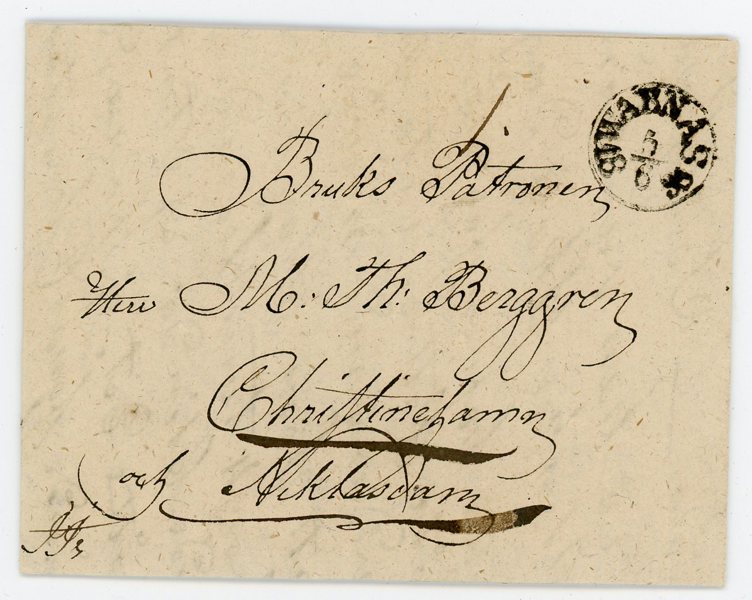 SUWARNÄS
5
6
Bruks Patronen
Herr M: Th: Berggren
Christinehamn
och Niklasdam